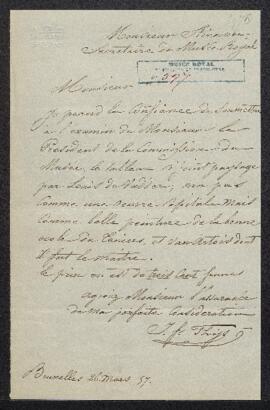 Monsieur
Secrétaire du Musée Royal
MUSÉE ROYAL
N° 597
Monsieur
Je prend la Confiance de Soumettre
à l'examen de Monsieur le
Président de la Commission du
Musée, le tableau ci joint paysage
par Louis de Vadder, non pas
comme une œuvre Capitale mais
comme belle peinture de la bonne
école de et d'Artois dont
il fut le maître.
Le prix en est de trois Cent francs
agréez Monsieur l'assurance
de ma parfaite Considération
Bruxelles 26 Mars 57.